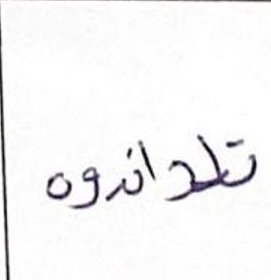 تلداندوه